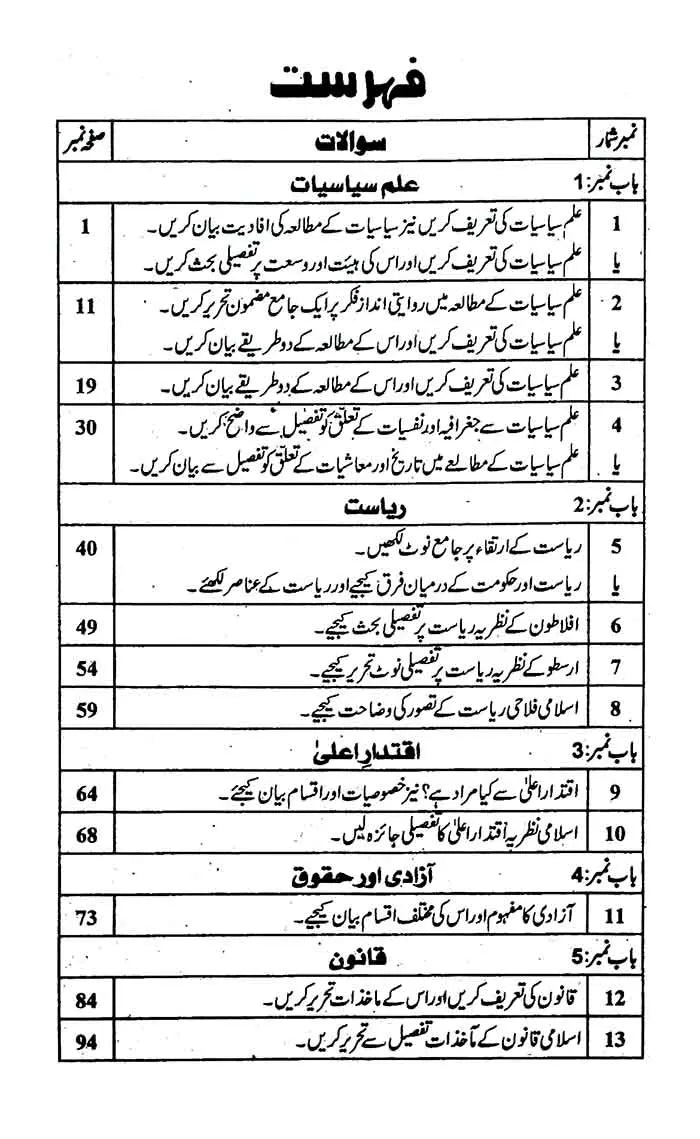 فہرست
نمبر شمار سوالات صفحہ نمبر
باب نمبر:1 علم سیاسیات
1 علم سیاسیات کی تعریف کریں نیز سیاسیات کے مطالعہ کی افادیت بیان کریں۔ 1
یا علم سیاسیات کی تعریف کریں اور اس کی ہیئت اور وسعت پر تفصیلی بحث کریں۔
2 علم سیاسیات کے مطالعہ میں روایتی انداز فکر پر ایک جامع مضمون تحریر کریں۔ 11
یا علم سیاسیات کی تعریف کریں اور اس کے مطالعہ کے دو طریقے بیان کریں۔
3 علم سیاسیات کی تعریف کریں اور اس کے مطالعہ کے دو طریقے بیان کریں۔ 19
4 علم سیاسیات سے جغرافیہ اور نفسیات کے تعلق کو تفصیل سے واضح کریں۔ 30
یا علم سیاسیات کے مطالعے میں تاریخ اور معاشیات کے تعلق کو تفصیل سے بیان کریں۔
باب نمبر:2 ریاست
5 ریاست کے ارتقاء پر جامع نوٹ لکھیں۔ 40
یا ریاست اور حکومت کے درمیان فرق کیجیے اور ریاست کے عناصر لکھئے۔
6 افلاطون کے نظریہ ریاست پر تفصیلی بحث کیجیے۔ 49
7 ارسطو کے نظریہ ریاست پر تفصیلی نوٹ تحریر کیجیے۔ 54
8 اسلامی فلاحی ریاست کے تصور کی وضاحت کیجیے۔ 59
باب نمبر:3 اقتدارِ اعلیٰ
9 اقتدار اعلیٰ سے کیا مراد ہے؟ نیز خصوصیات اور اقسام بیان کیجئے۔ 64
10 اسلامی نظریہ اقتدار اعلیٰ کا تفصیلی جائزہ لیں۔ 68
باب نمبر:4 آزادی اور حقوق
11 آزادی کا مفہوم اور اس کی مختلف اقسام بیان کیجیے۔ 73
باب نمبر:5 قانون
12 قانون کی تعریف کریں اور اس کے ماخذات تحریر کریں۔ 84
13 اسلامی قانون کے مآخذات تفصیل سے تحریر کریں۔ 94